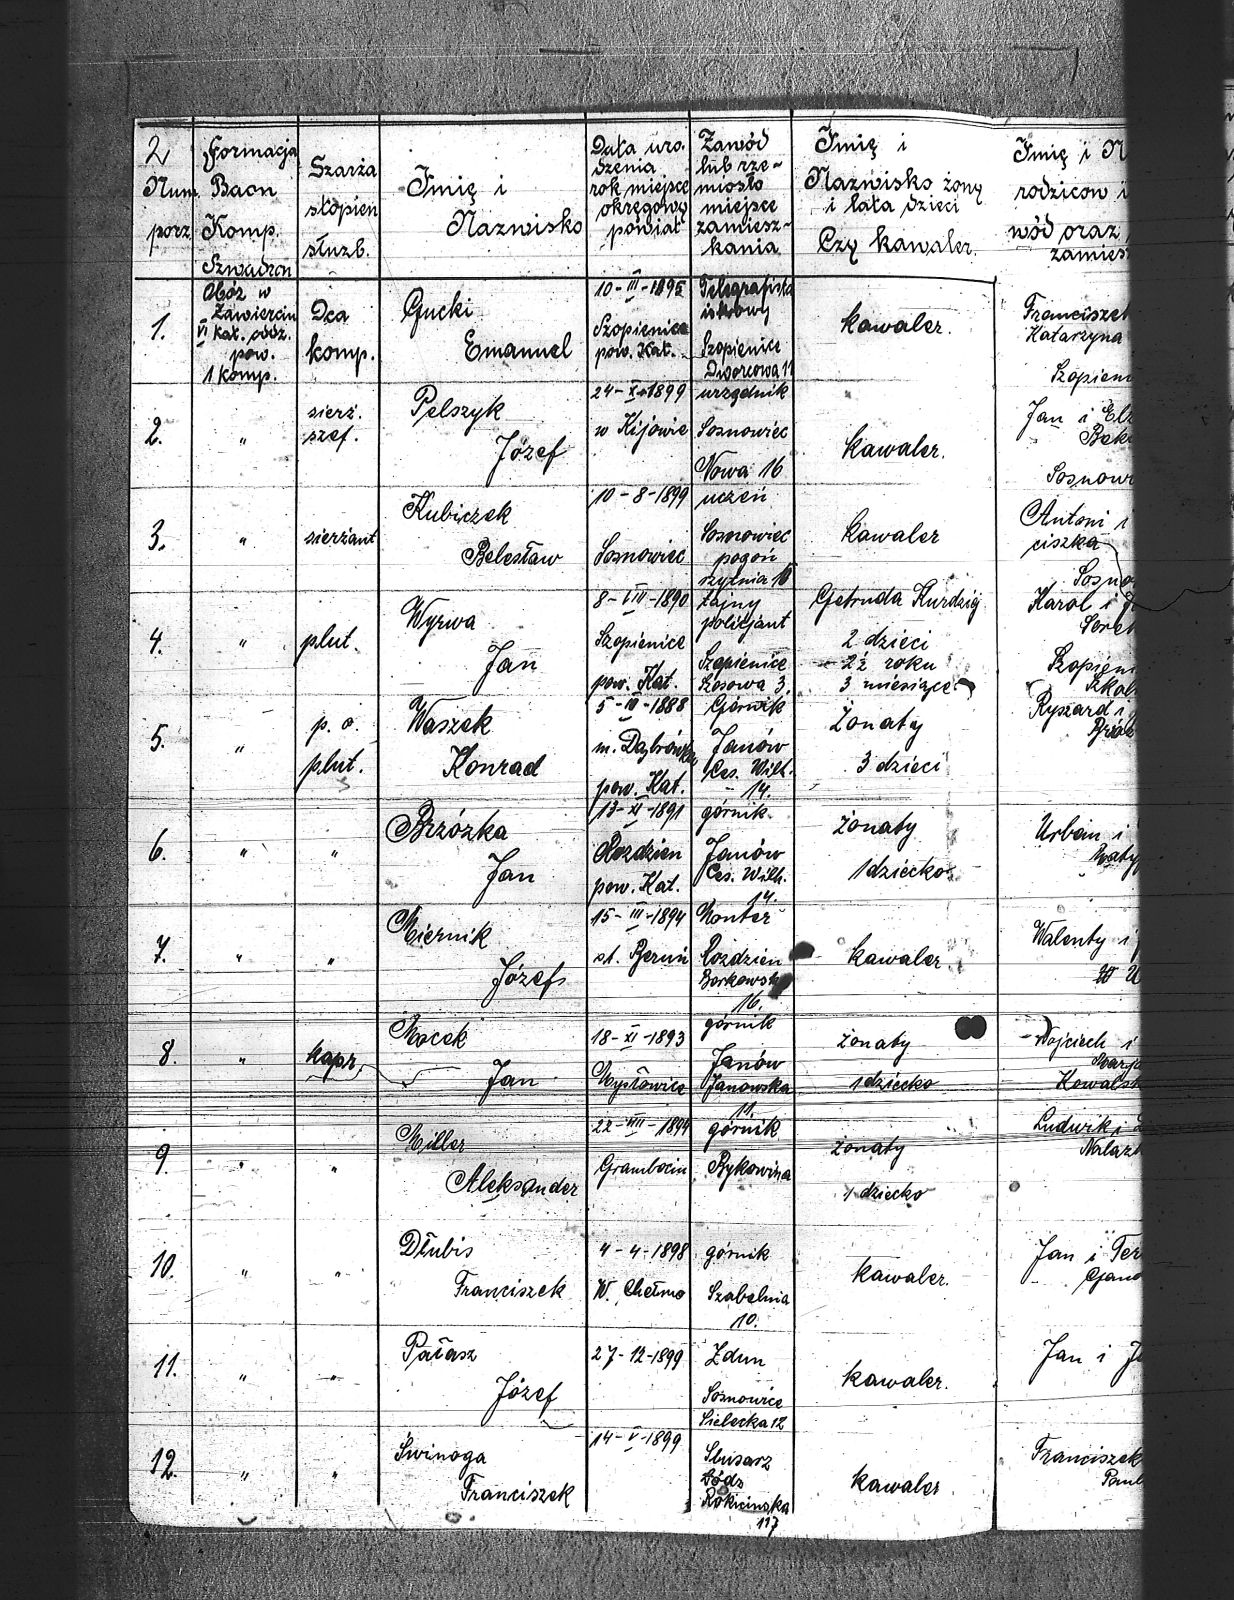 2
Num.
porz.
Formacja
Baon
Komp.
Szwadron
Szarża
stopień
służb.
Imię i
Nazwisko
Data uro-
dzenia
rok miejsce
okręgowy
powiat
Zawód
lub rze-
miosło
miejsce
zamiesz-
kania
Imię i
Nazwisko żony
i lata dzieci
Czy kawaler.
Imię i N
rodziców i
wód oraz
zamies
1.
Obóz w
Zawierciu
VI kat. odz.
pow.
1 komp.
Dca
komp.
Gucki
Emanuel
10-III-1895
Szopienice
pow. Kat.
Telegrafista
iskrowy
Szopienice
Dworcowa 11
kawaler.
Franciszek
Katarzyna
Szopieni
2.
"
sierż.
szef.
Pelszyk
Józef
24-X-1899
w Kijowie
urzędnik
Sosnowiec
Nowa 16
kawaler.
Jan i Elż
Sosnow
3.
"
sierżant
Kubiczek
Bolesław
10-8-1899
Sosnowiec
uczeń
Sosnowiec
pogoń
żytnia 10
kawaler
Antoni i
ciszka
Sosno
4.
"
plut.
Wyrwa
Jan
8-VIII-1890
Szopienice
pow. Kat.
tajny
policjant
Szopienice
Szosowa 3.
Getruda Kurdzig
2 dzieci
- 2½ roku
3 miesiące
Karol i
Szopieni
5.
"
p. o.
plut.
Waszek
Konrad
5-III-1888
m. Dąbrówka
pow. Kat.
Górnik
Janów
Ces. Wilh.
- 14.
żonaty
3 dzieci
Ryszard i
6.
"
"
Brzózka
Jan
13-XI-1891
Rozdzien
pow. Kat.
górnik.
Janów
Ces. Wilh.
14.
żonaty
1 dziecko
Urban i
7.
"
"
Miernik
Józef
15-III-1894
st. Bieruń
Monter
Rozdzien
Borkowska
16.
kawaler
Walenty i
8.
"
kapr.
Mocek
Jan
18-XI-1893
Mysłowice
górnik
Janów
Janowska
11.
żonaty
1 dziecko
Wojciech i
Marja
Kowalsk
9
"
"
Miller
Aleksander
22-VIII-1894
Grambocin
górnik
Bykowina
żonaty
1 dziecko
Ludwik i
10.
"
"
Dłubis
Franciszek
4-4-1898
W. Chełmo
górnik
Szabelnia
10.
kawaler.
Jan i Ter
11.
"
"
Pałasz
Józef
27-12-1899
Zdun
Sosnowice
Sielecka 12
kawaler.
Jan i J
12.
"
"
Świnoga
Franciszek
14-V-1899
Slusarz
Łódz
Rokicinska
117
kawaler
Franciszek